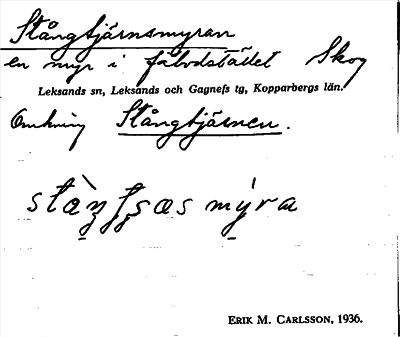 Stångtjärnsmyran
en myr i fäbodstället Skog
Leksands sn, Leksands och Gagnefs tg, Kopparbergs län.
Omkring Stångtjärnen.
myra
ERIK M. CARLSSON, 1936.